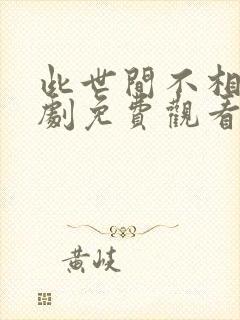 此世間不相
劇免費觀看
黃岐